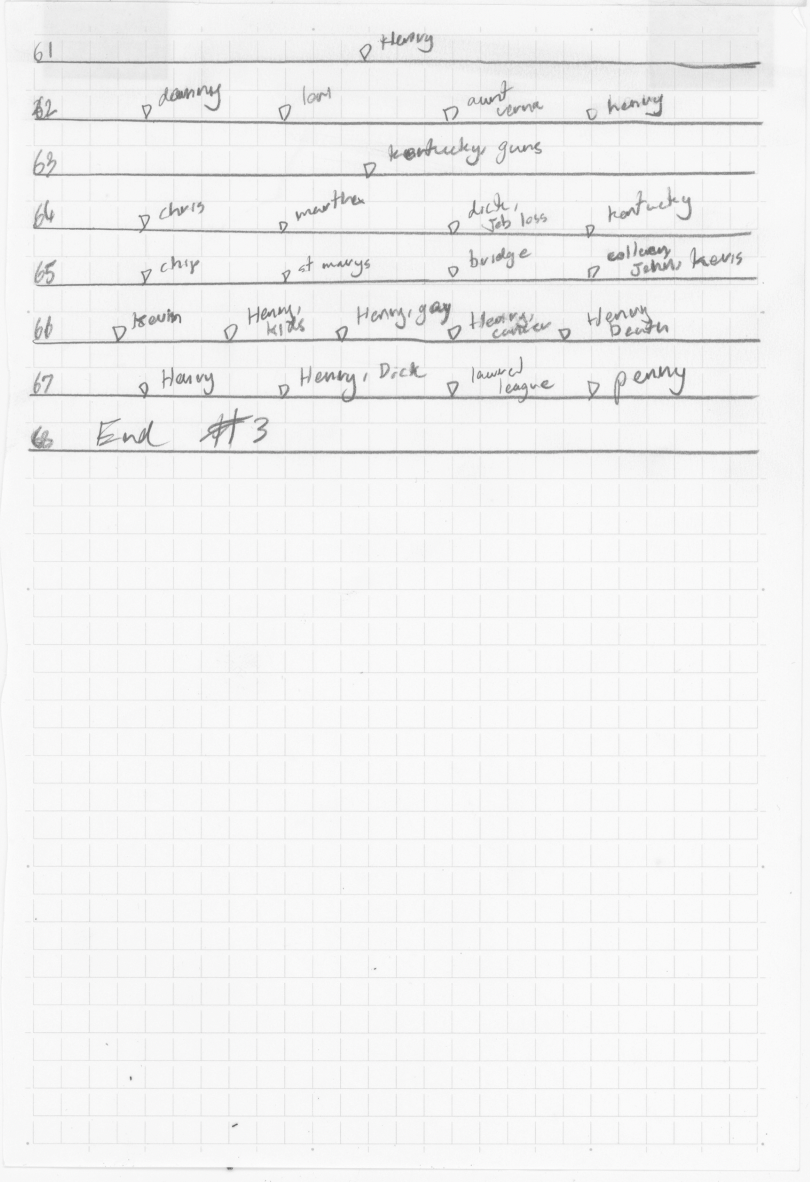 61 Henry
62 danny lori aunt verna henry
63 kentucky, guns
64 chris martha dick, job loss kentucky
65 chip st marys bridge colleen, John,
66 Kevin Henry, kids Henry, gay Henry, cancer Henry Death
67 Henry Henry, Dick league penny
68 End #3